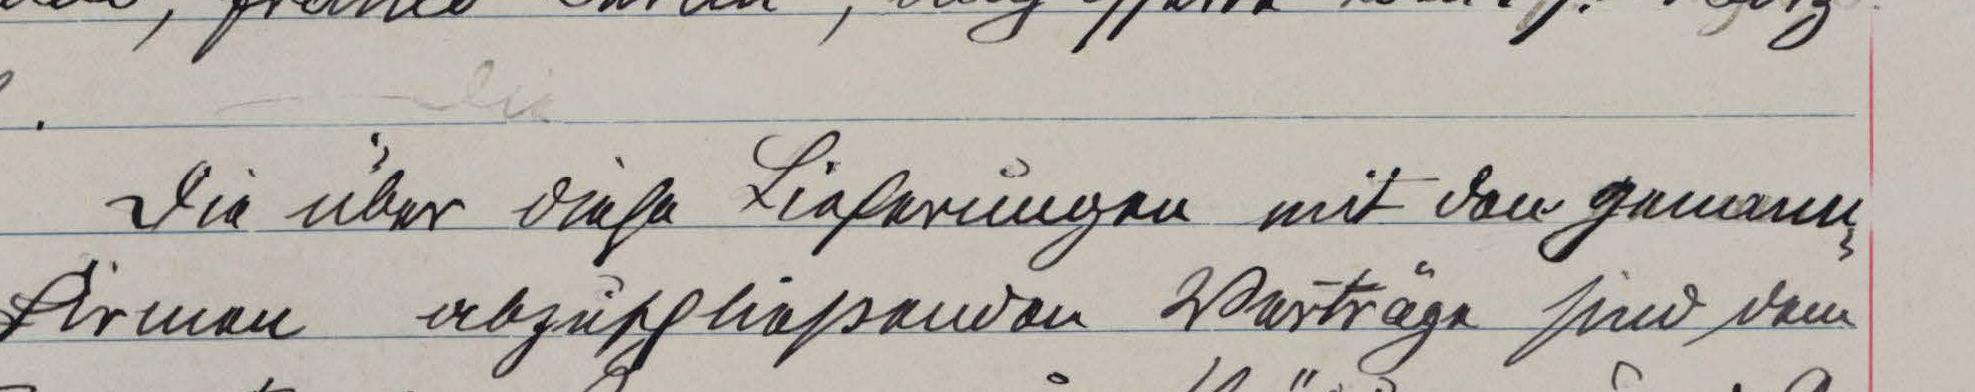 Die
Die über diese Lieferungen mit den genann⸗
Firmen abzuschließenden Verträge sind dem